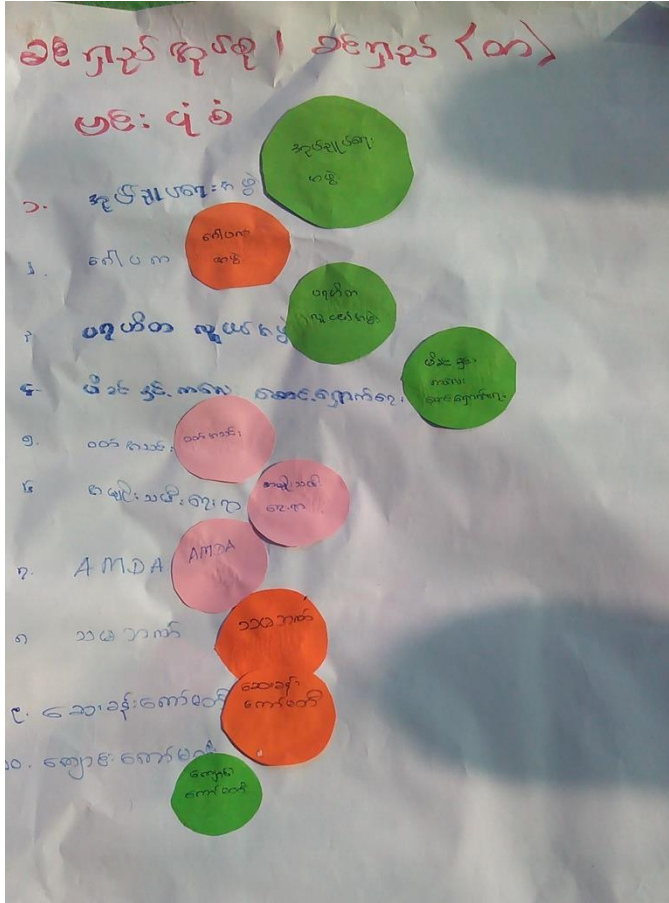 ခင်ရှည် အုပ်စု၊ ခင်ရှည် (တ)
မင်းပုံစံ
၁. အုပ်ချုပ်ရေးအဖွဲ့
အုပ်ချုပ်ရေး
အဖွဲ့
၂. ဂေါပက
ဂေါပက
အဖွဲ့
၃. ပရဟိတ လူငယ်အဖွဲ့
ပရဟိတ
လူငယ်အဖွဲ့
၄. မိခင် နှင့် ကလေး စောင့်ရှောက်ရေး
မိခင် နှင့်
ကလေး
စောင့်ရှောက်ရေး
၅. ဝတ်အသင်း
ဝတ်အသင်း
၆. အမျိုးသမီးရေးရာ
အမျိုးသမီး
ရေးရာ
၇. AMDA
AMDA
၈ သမဘဏ်
သမဘဏ်
၉. ဆေးခန်းကော်မတီ
ဆေးခန်း
ကော်မတီ
၁၀. ကျောင်းကော်မတီ
ကျောင်း
ကော်မတီ